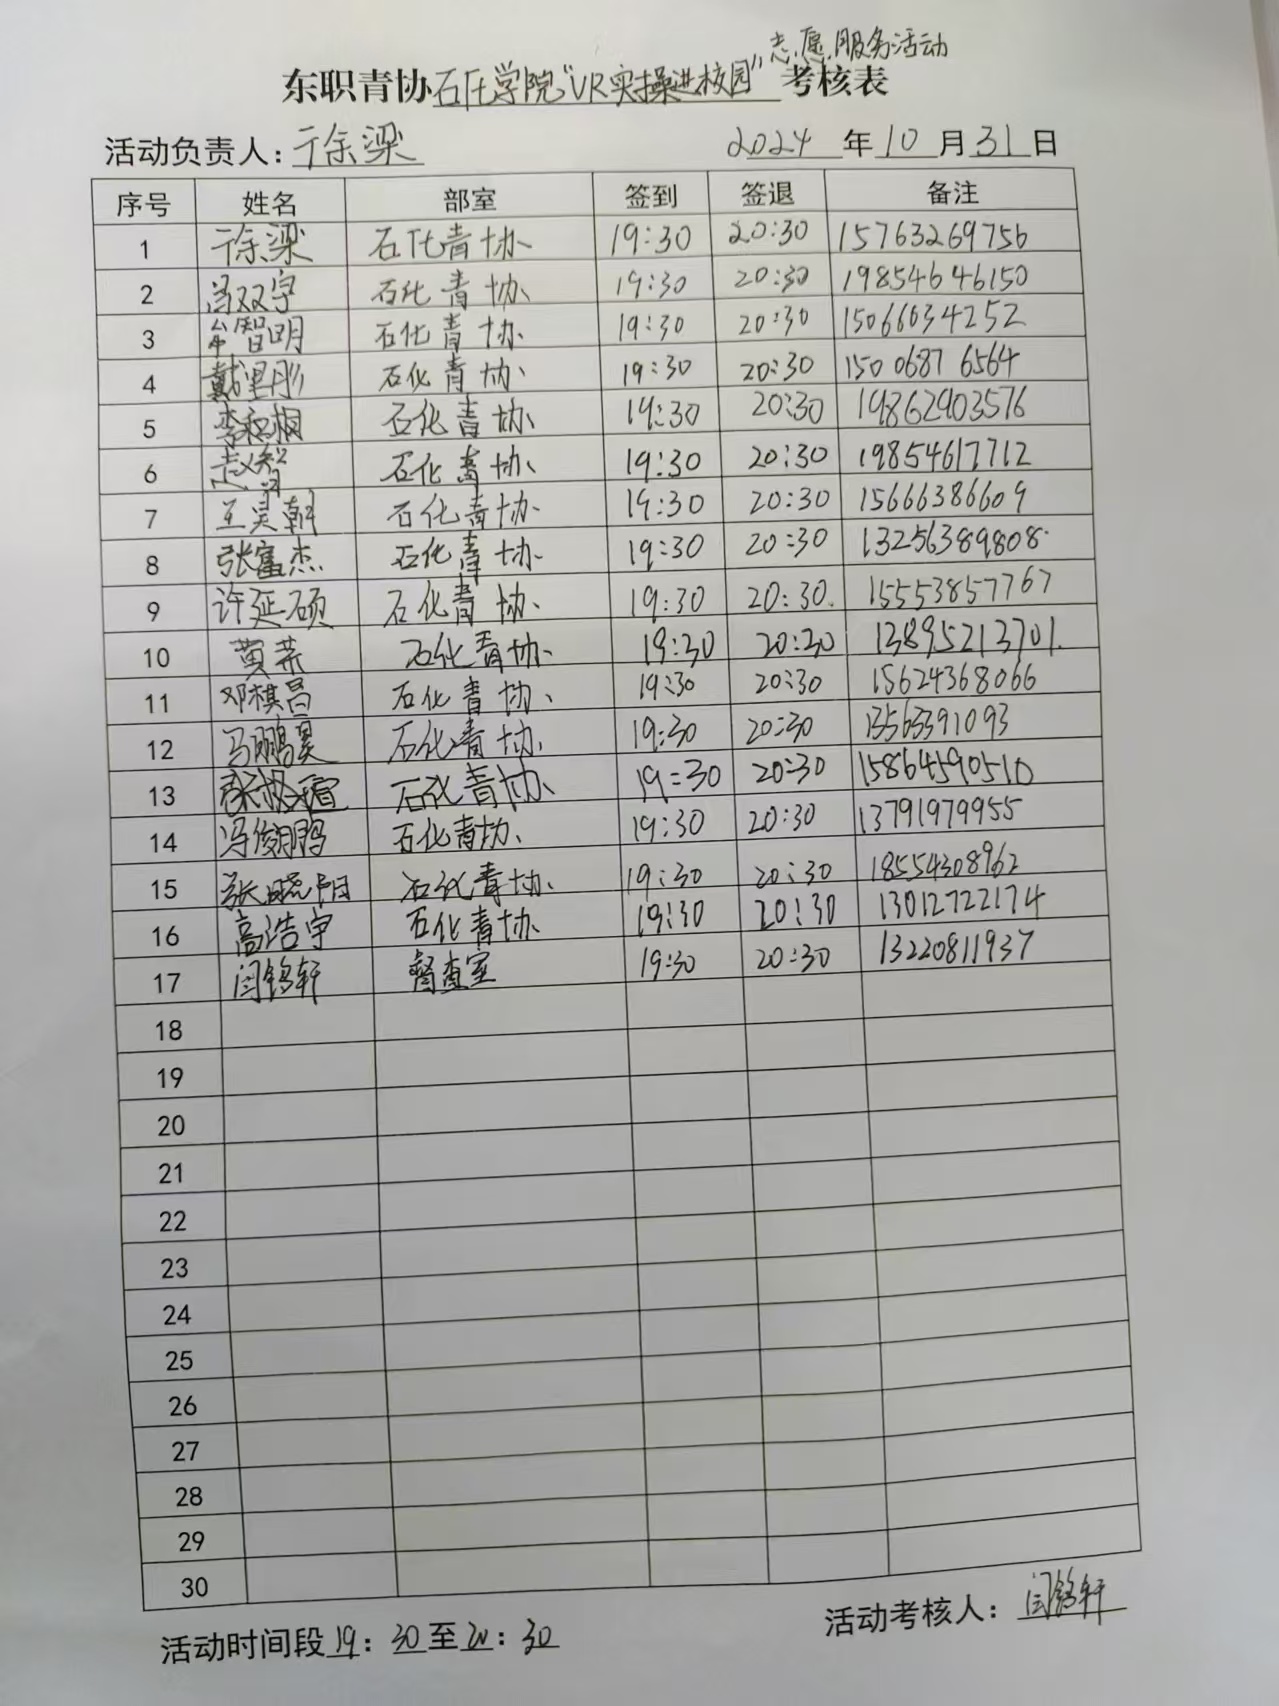 志愿服务活动
东职青协石化学院"VR实操进校园"考核表
活动负责人：徐梁 2024年10月31日
序号 姓名 部室 签到 签退 备注
1 徐梁 石化青协 19:30 20:30 15763269756
2 冯双宇 石化青协 19:30 20:30 19854646150
3 常智明 石化青协 19:30 20:30 15066034252
4 戴 石化青协 19:30 20:30 150 0687 6564
5 李 桐 石化青协 19:30 20:30 19862903576
6 石化青协 19:30 20:30 19854617712
7 王昊朝 石化青协 19:30 20:30 15666386609
8 张富杰 石化青协 19:30 20:30 13256389808
9 许延硕 石化青协 19:30 20:30 15553857767
10 黄 石化青协 19:30 20:30 13895213701
11 邓棋昌 石化青协 19:30 20:30 15624368066
12 马鹏昊 石化青协 19:30 20:30 13563391093
13 石化青协 19:30 20:30 15864590510
14 冯俊鹏 石化青协 19:30 20:30 13791979955
15 张晓阳 石化青协 19:30 20:30 18554308962
16 高浩宇 石化青协 19:30 20:30 13012722174
17 闫铭轩 督查室 19:30 20:30 13220811937
18
19
20
21
22
23
24
25
26
27
28
29
30
活动时间段19：30至20：30 活动考核人：闫铭轩